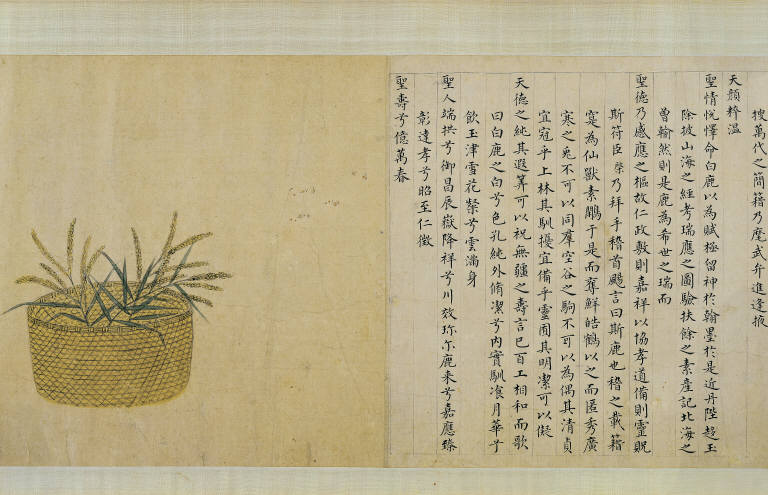 搜萬代之簡籍乃麾武弁進逢掖
天顏粹溫
聖情悅懌命白鹿以為賦極留神於翰墨於是近丹陛趍玉
除披山海之經考瑞應之圖驗扶餘之素產記北海之
曾翰然則是鹿為希世之瑞而
聖德乃感應之樞故仁政敷則嘉祥以協孝道備則靈貺
斯符臣榮乃拜手稽首颺言曰斯鹿也稽之載籍
寔為仙獸素鷴于是而奪鮮皓鶴以之而匿秀廣
寒之兎不可以同群空谷之駒不可以為偶其清貞
宜冠乎上林其馴擾宜備乎靈囿其明潔可以儗
天德之純其遐筭可以祝無疆之壽言已百工相和而歌
曰白鹿之白兮色孔純外脩潔兮內實馴飡月華兮
飲玉津雪花粲兮雲滿身
聖人端拱兮御昌辰嶽降祥兮川效珍尒鹿來兮嘉應臻
彰達孝兮昭至仁徵
聖壽兮億萬春